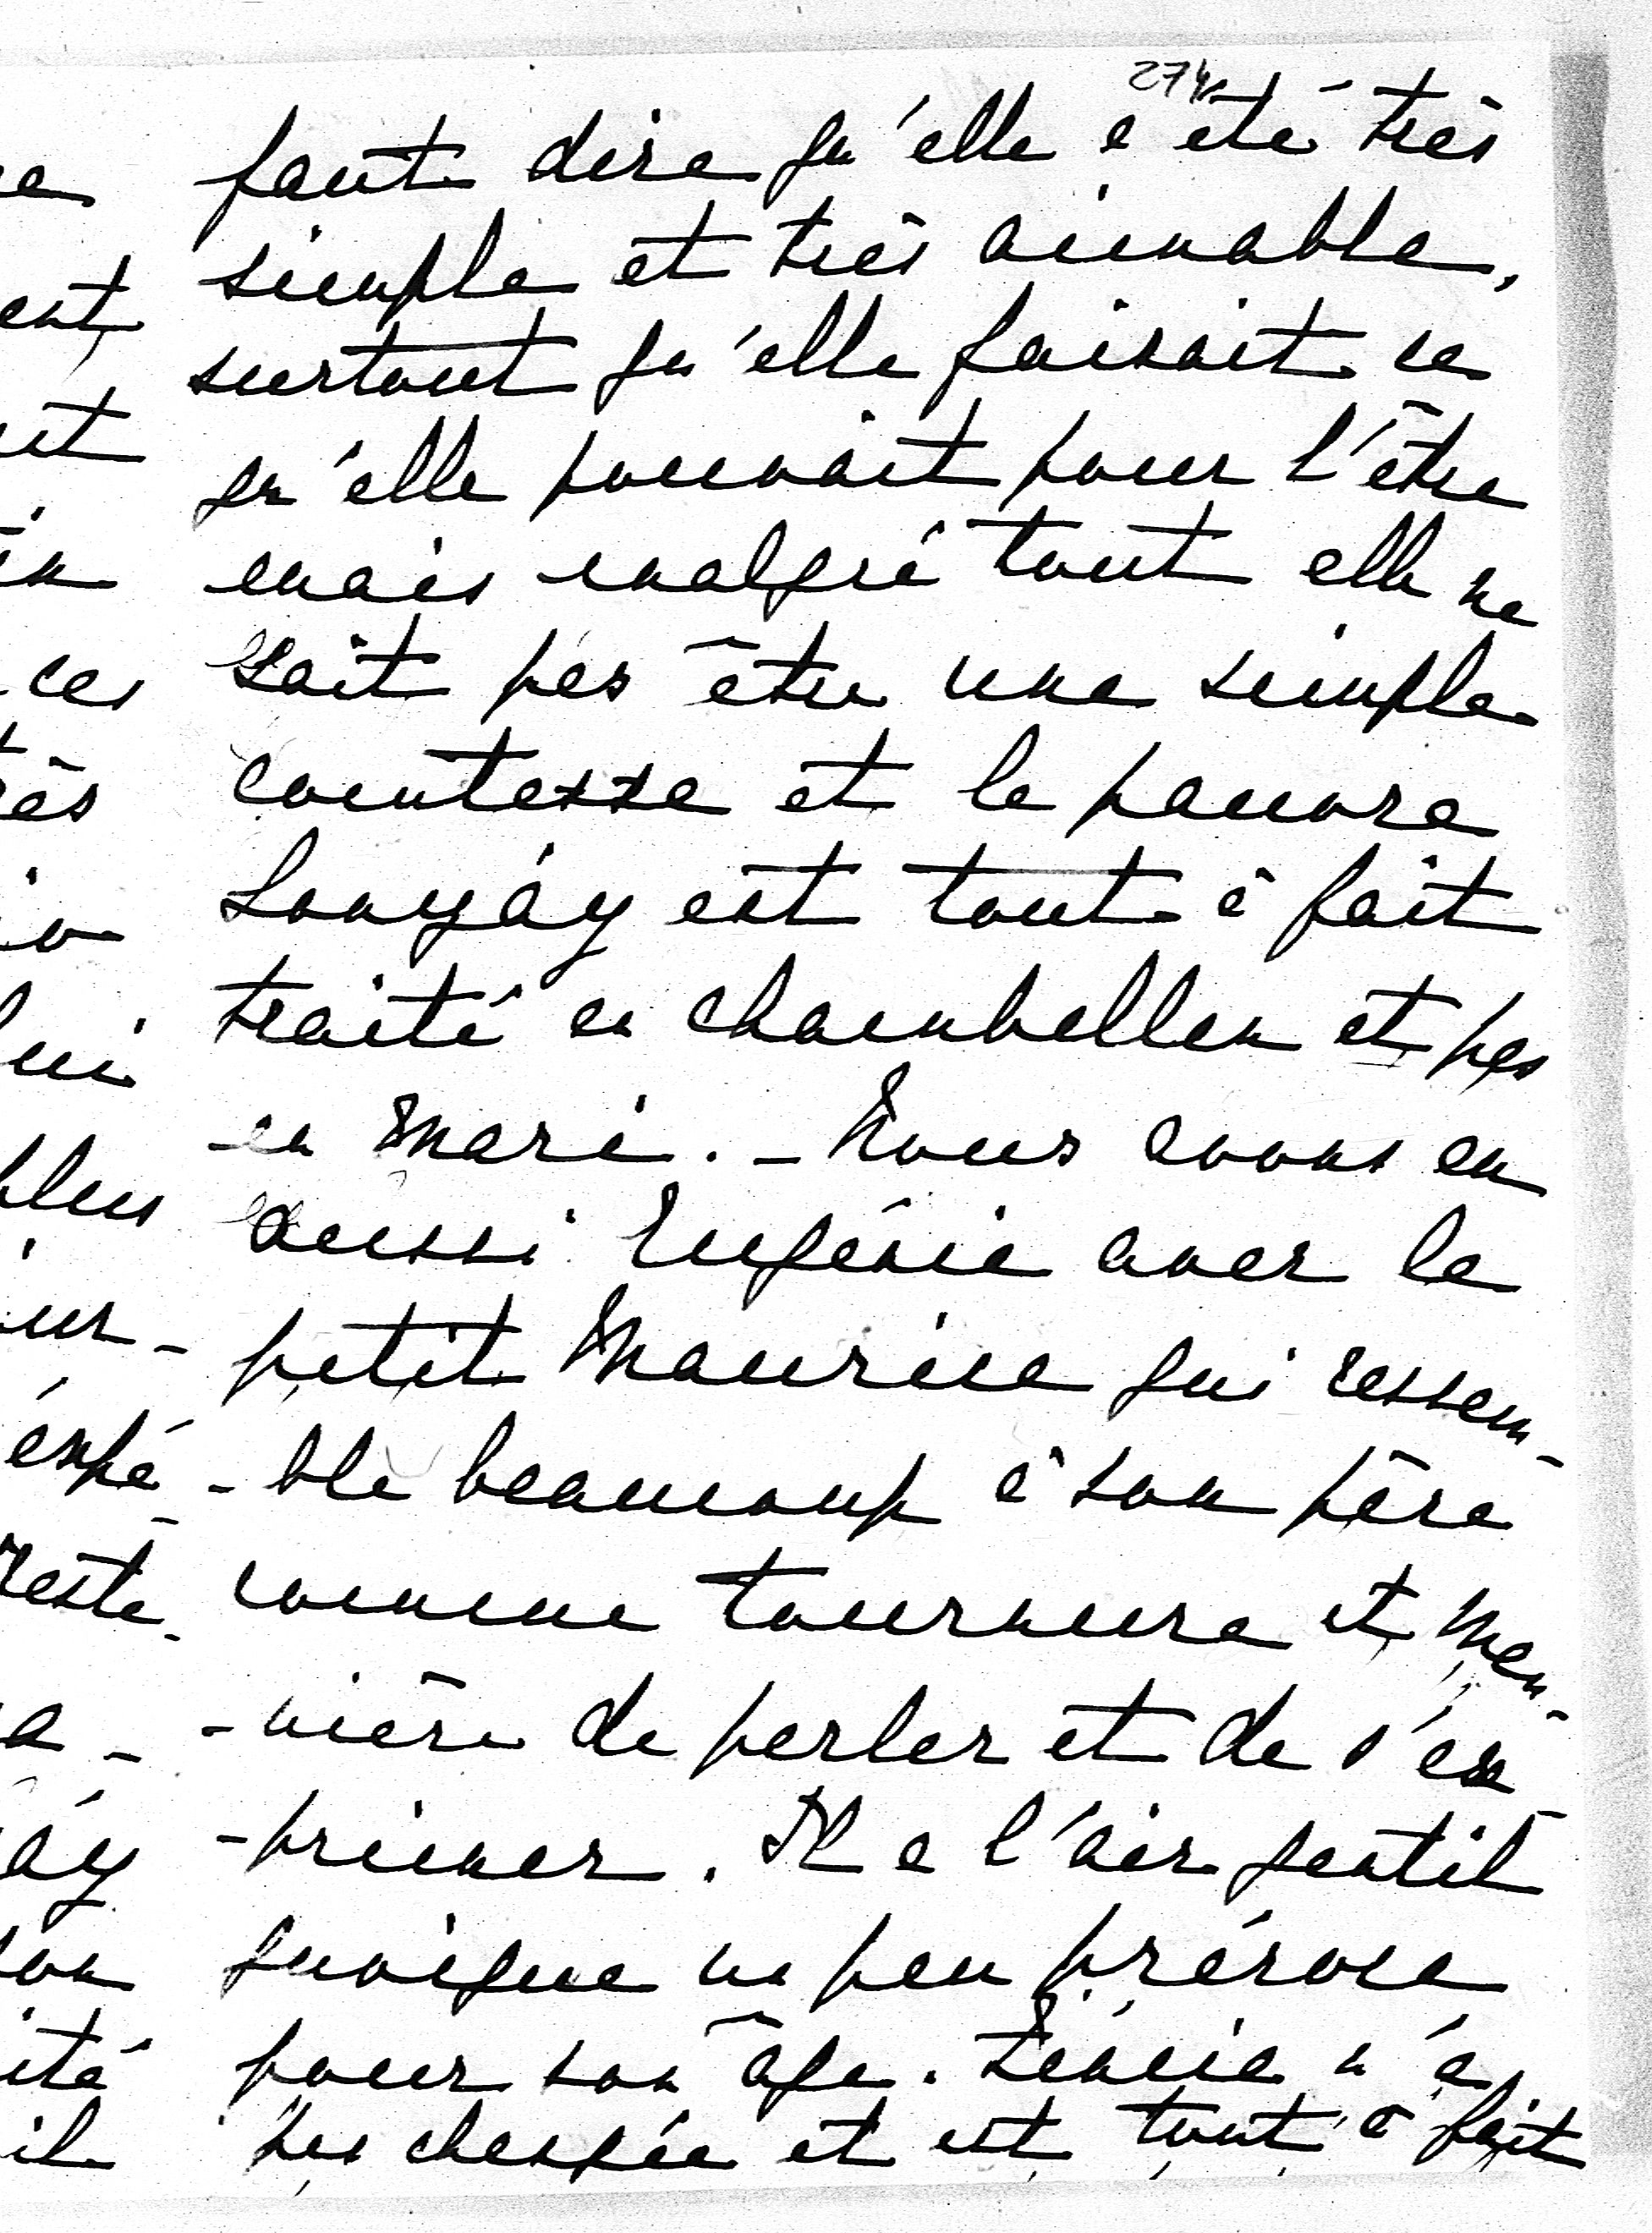 274
faut dire qu'elle a été très
simple et très aimable,
surtout qu'elle faisait ce
qu'elle pouvait pour l'être
mais malgré tout elle ne
sait pas être une simple
comtesse et le pauvre
Lonyáy est tout à fait
traité en chambellan et pas
en mari. - Nous avons eu
aussi Eugénie avec le
petit Maurice qui ressem-
-ble beaucoup à son père
comme tournure et man-
-nière de parler et de s'ex-
-primer. Il a l'air gentil
quoique un peu précoce
pour son âge. n'a
pas changée et est tout à fait